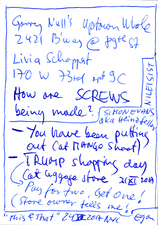 Garry Null's Uptown Whole
2421 B'way @ 89th St
Livia Scheppat
170 W 73rd apt 3C
How are SCREWS
being made? (SIMON EVANS
(aka Heinz
NIHILIST
- You have been putting
out Cat MANGO Shoot)
- TRUMP shopping day
Cat luggage store 21 XI 2017
"Pay for two, Get One!
(Store owner tells me!)
"This & That" 24 XII 2017 NYC Egon